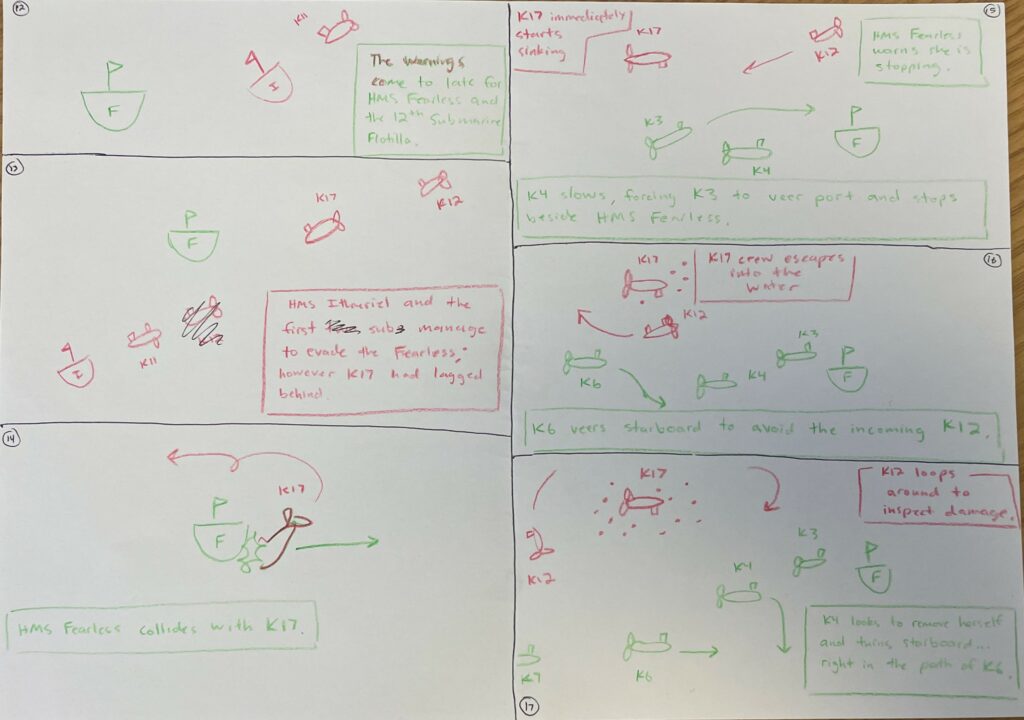 12
K11
F
I
The warnings
come to late for
HMS Fearless and
the 12th Submarine
Flotilla.
13
K17
K12
F
K11
I
HMS Ithuriel and the
first subs manage
to evade the Fearless,
however K17 had lagged
behind.
14
K17
F
HMS Fearless collides with K17.
15
K17 immediately
starts
sinking
K17
K12
HMS Fearless
warns she is
stopping.
K3
K4
F
K4 slows, forcing K3 to veer port and stops
beside HMS Fearless.
16
K17
K17 crew escapes
into the
water
K12
K6
K3
K4
F
K6 veers starboard to avoid the incoming K12.
17
K17
K12 loops
around to
inspect damage.
K12
K3
K4
F
K7
K6
K4 looks to remove herself
and turns starboard...
right in the path of K6.